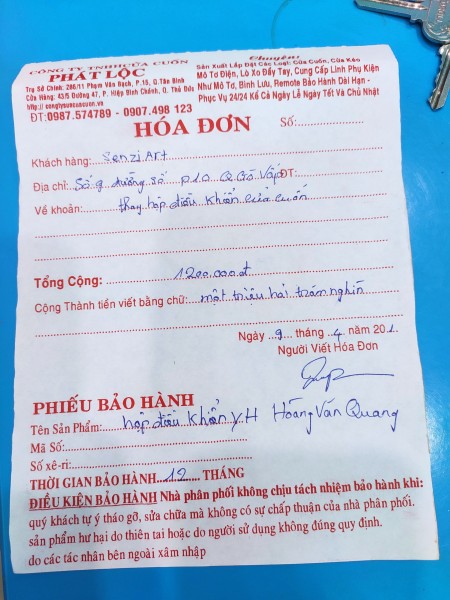 CÔNG TY TNHH CỬA CUỐN
PHÁT LỘC
Trụ Sở Chính: 286/11 Phạm Văn Bạch, P.15, Q.Tân Bình
Cửa Hàng: 43/5 Đường 47, P. Hiệp Bình Chánh, Q. Thủ Đức
http://congtysuacuacuon.vn
ĐT:0987.574789 - 0907.498 123
Chuyên:
Sản Xuất Lắp Đặt Các Loại: Cửa Cuốn, Cửa Kéo
Mô Tơ Điện, Lò Xo Đẩy Tay, Cung Cấp Linh Phụ Kiện
Như Mô Tơ, Bình Lưu, Remote Bảo Hành Dài Hạn -
Phục Vụ 24/24 Kể Cả Ngày Lễ Ngày Tết Và Chủ Nhật
HÓA ĐƠN Số:
Khách hàng: Senzi Art
Địa chỉ: Số 9 đường số P10 Q Gò Vấp ĐT:
Về khoản: thay hộp điều khiển cửa cuốn
Tổng Cộng: 1200.000.đ
Cộng Thành tiền viết bằng chữ: một triệu hai trăm nghìn
Ngày 9 tháng 4 năm 201
Người Viết Hóa Đơn
PHIẾU BẢO HÀNH
Tên Sản Phẩm: hộp điều khiển YH Hoàng Văn Quang
Mã Số:
Số xê-ri:
THỜI GIAN BẢO HÀNH 12 THÁNG
ĐIỀU KIỆN BẢO HÀNH Nhà phân phối không chịu tách nhiệm bảo hành khi:
quý khách tự ý tháo gỡ, sửa chữa mà không có sự chấp thuận của nhà phân phối.
sản phẩm hư hại do thiên tai hoặc do người sử dụng không đúng quy định.
do các tác nhân bên ngoài xâm nhập